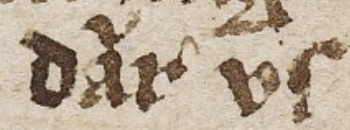 dar vſ